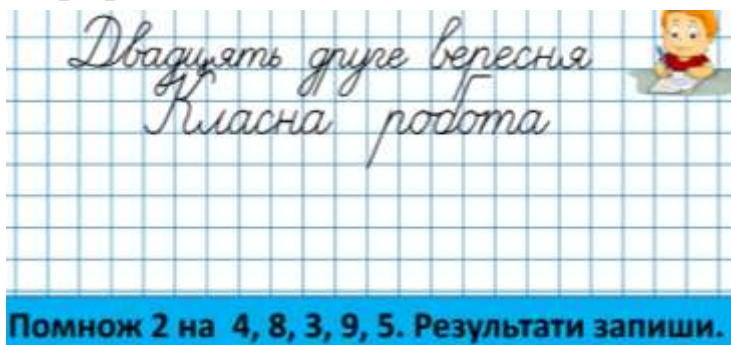 Двадцять друге вересня
Класна робота
Помнож 2 на 4, 8, 3, 9, 5. Результати запиши.